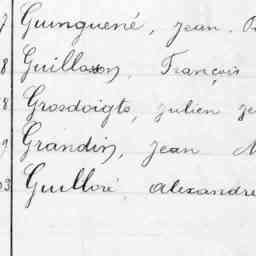 7 Guinguené, Jean
8 Guillosson, François
8 Grosdoigts, Julien
9 Grandin, Jean
03 Guilloré Alexandre